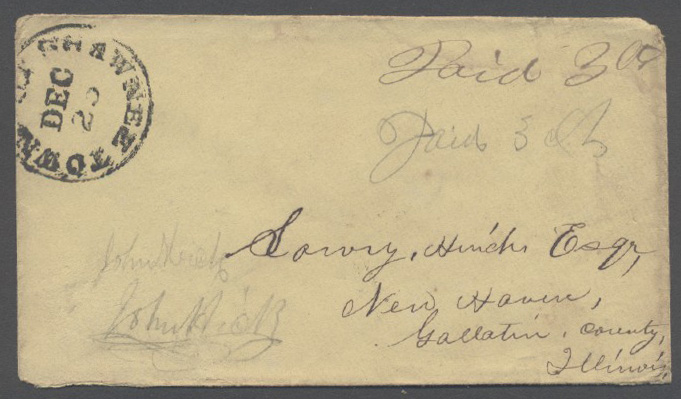 SHAWNEETOWN
DEC
Paid 3 cts
Paid 3 cts
Lowry, Hinch Esqr,
New Haven,
Gallatin, County,
Illinois,
John
John